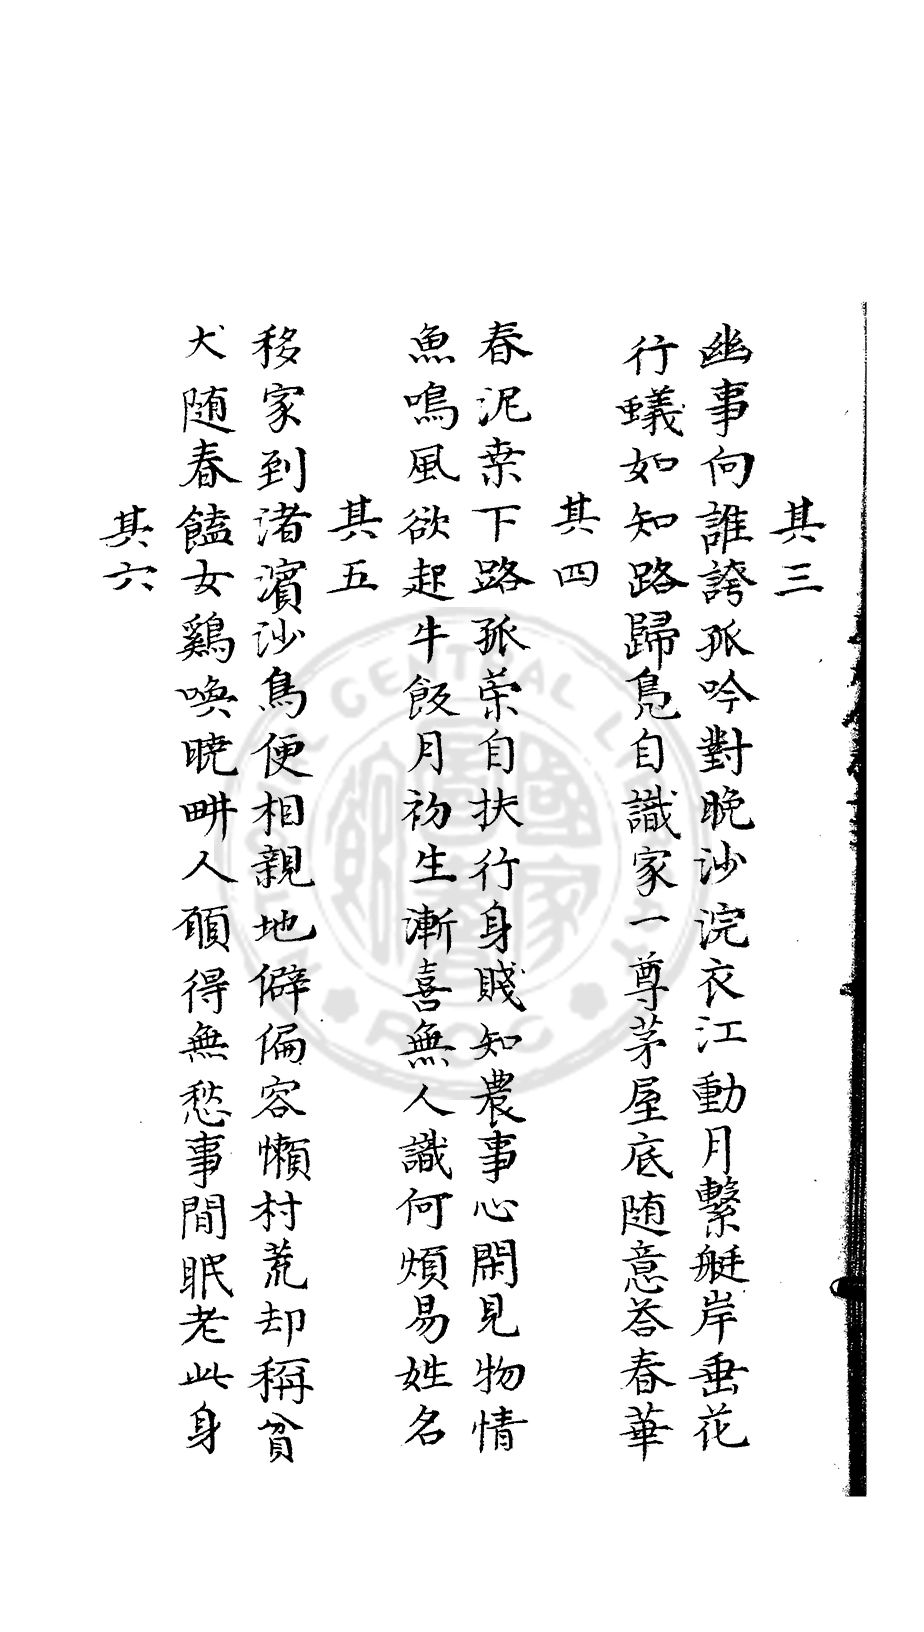 其三
幽事向誰誇孤吟對晚沙浣衣江動月繫艇岸垂花
行蟻如知路歸鳧自識家一尊茅屋底随意荅春華
其四
春泥桒下路孤策自扶行身賤知農事心閑見物情
魚鳴風欲起牛飯月初生漸喜無人識何煩易姓名
其五
移家到渚濱沙鳥便相親地僻偏容懶村荒却稱貧
犬随春饁女鷄喚曉畊人願得無愁事閒眠老此身
其六
CENTRAL
ROC
國家
圖書